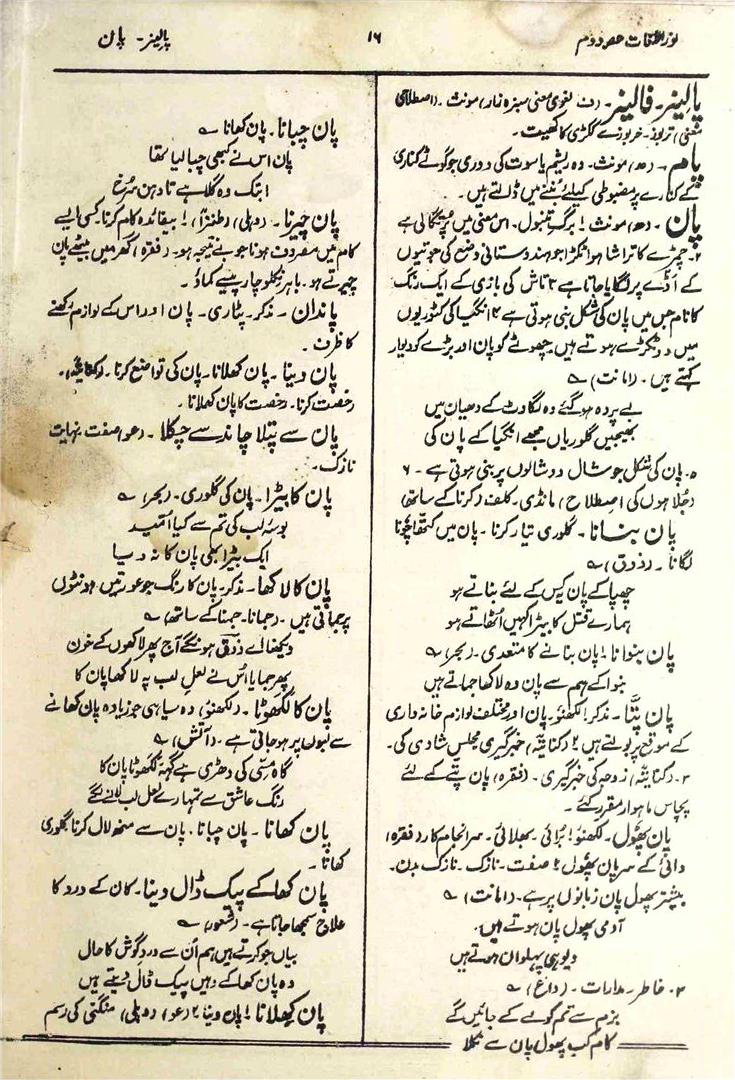 نور اللغات حصہ دوم
۱۶
پالیز۔ پان
پالیز۔ فالیز۔ (ف لغوی معنی سبزہ زار) مونث۔ (اصطلاحی
معنی) تربوز۔ خربوزے ککڑی کا کھیت۔
پام۔ (ھ) مونث۔ وہ ریشم یا سوت کی ڈوری جو گوٹے کناری
کے کنارے پر مضبوطی کیلئے بُننے میں ڈالتے ہیں۔
پان۔ (ھ) مونث ۱ برگِ تنبول۔ اس معنی میں پرتگالی ہے
۲۔ چمڑے کا تراشا ہوا ٹکڑا جو ہندوستانی وضع کی جوتیوں
کے اڈے پر لگایا جاتا ہے ۳ تاش کی بازی کے ایک رنگ
کا نام جس میں پان کی شکل بنی ہوتی ہے ۴ انگیا کی کٹوریوں
میں دو ٹکڑے ہوتے ہیں چھوٹے کو پان اور بڑے کو دیوار
کہتے ہیں۔ (امانت) ؎
بے پردہ ہو گئے وہ لگاوٹ کے دھیان میں
بھیجیں گلوریاں مجھے انگیا کے پان کی
۵۔ پان کی شکل جو شال دوشالوں پر بنی ہوتی ہے۔ ۶
(جُلاہوں کی اصطلاح) مانڈی۔ کلف (کرنا کے ساتھ)
پان بنانا۔ گلوری تیار کرنا۔ پان میں کتھا چونا
لگانا۔ (ذوق) ؎
چھپا کے پان کس کے لئے بناتے ہو
ہمارے قتل کا بیڑا کہیں اُٹھاتے ہو
پان بنوانا ! پان بنانے کا متعدی۔ (بحر) ؎
بنوا کے ہم سے پان وہ لاکھا جماتے ہیں
پان پتّا۔ مذکر ! لکھنؤ۔ پان اور مختلف لوازم خانہ داری
کے موقع پر بولتے ہیں ۲ (کنایتہً) خبر گیری مجلسِ شادی کی۔
۳۔ (کنایتہً) زوجہ کی خبر گیری۔ (فقرہ) پان پتّے کے لئے
پچاس ماہوار مقرر کئے۔
پان پھول۔ لکھنؤ ! بُرائی۔ بھلائی۔ سرانجام کار (فقرہ)
دائی کے سر پان پھول ۲ صفت۔ نازک۔ نازک بدن۔
بیشتر پھول پان زبانوں پر ہے۔ (امانت) ؎
آدمی پھول پان ہوتے ہیں۔
دیو ہی پہلوان ہوتے ہیں
۳۔ خاطر۔ مدارات۔ (داغ) ؎
بزم سے تم کو لے کے جائیں گے
کام کب پھول پان سے نکلا
پان چبانا۔ پان کھانا ؎
پان اس نے کبھی چبا لیا تھا
ابتک وہ گلا ہے تا دہن سُرخ
پان چیرنا۔ (دہلی) (طنزاً) ! بیفائدہ کام کرنا کسی ایسے
کام میں مصروف ہونا جو بے نتیجہ ہو۔ (فقرہ) گھر میں بیٹھے پان
چیرتے ہو۔ باہر نکلو چار پیسے کماؤ۔
پاندان۔ مذکر۔ پٹاری۔ پان اور اس کے لوازم رکھنے
کا ظرف۔
پان دینا۔ پان کھلانا۔ پان کی تواضع کرنا۔ (کنایتہً)۔
رخصت کرنا۔ رخصت کا پان کھلانا۔
پان سے پتلا چاند سے چکلا۔ (عو) صفت نہایت
نازک۔
پان کا بیڑا۔ پان کی گلوری۔ (بحر) ؎
بوسۂ لب کی تم سے کیا اُمید
ایک بیڑا بھی پان کا نہ دیا
پان کا لاکھا۔ مذکر۔ پان کا رنگ جو عورتیں ہونٹوں
پر جماتی ہیں۔ (جمانا۔ جمنا کے ساتھ) ؎
دیکھنا اے ذوقؔ ہونگے آج پھر لاکھوں کے خون
پھر جمایا اُس نے لعلِ لب پہ لاکھا پان کا
پان کا لکھوٹا۔ (لکھنؤ) وہ سیاہی جو زیادہ پان کھانے
سے لبوں پر ہو جاتی ہے۔ (آتش) ؎
گاہ مسّی کی دھڑی ہے گہہ لکھوٹا پان کا
رنگ عاشق سے تمہارے لعلِ لب لانے لگے
پان کھانا۔ پان چبانا۔ پان سے منھ لال کرنا گلوری
کھانا۔
پان کھا کے پیک ڈال دینا۔ کان کے درد کا
علاج سمجھا جاتا ہے۔ (شعور) ؎
بیاں جو کرتے ہیں ہم اُن سے دردِ گوش کا حال
وہ پان کھا کے وہیں پیک ڈال دیتے ہیں
پان کھلانا ! پان دینا ۲ (عو) (دہلی) منگنی کی رسم